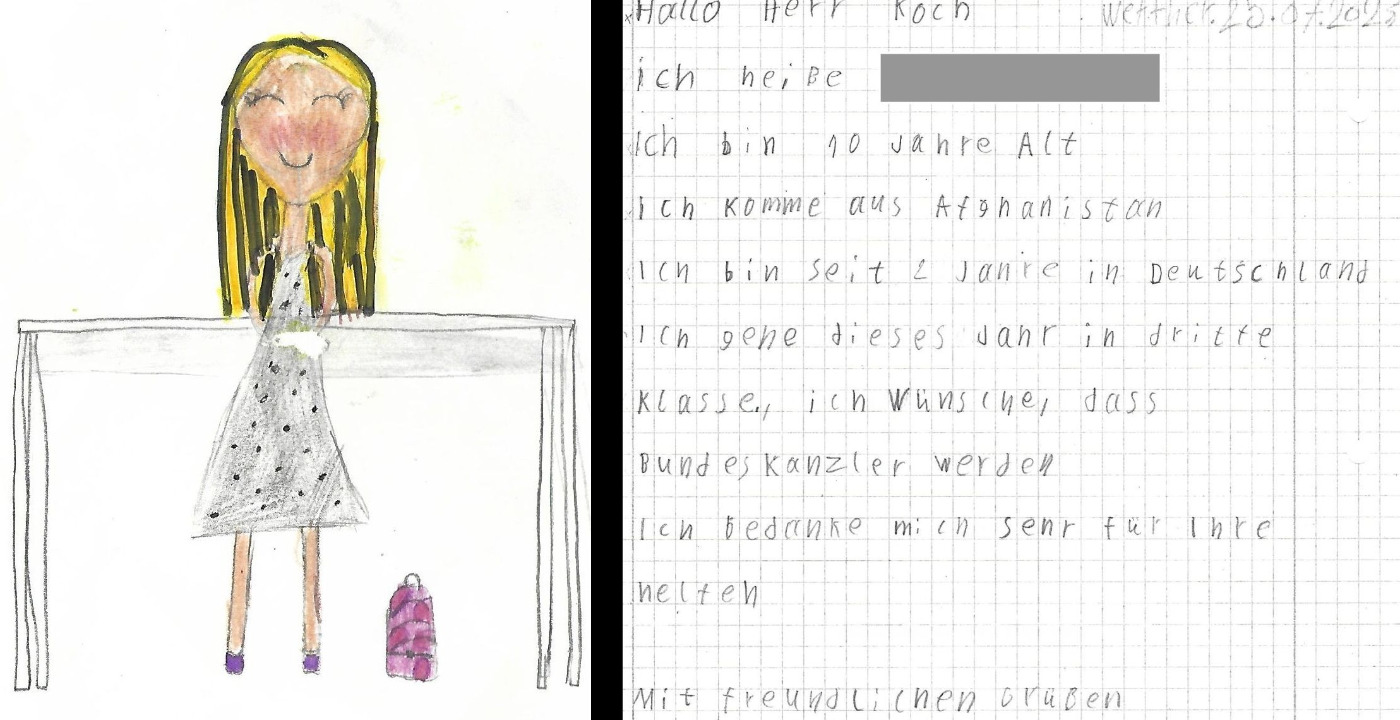 Hallo Herr Koch
Wettlict. 20.07.2023
ich heiße
Ich bin 10 Jahre Alt
Ich komme aus Afghanistan
Ich bin seit 2 Jahre in Deutschland
Ich gehe dieses Jahr in dritte
Klasse, ich Wünsche, dass
Bundeskanzler werden
Ich bedanke mich sehr für Ihre
helfen
Mit freundlichen Grüßen